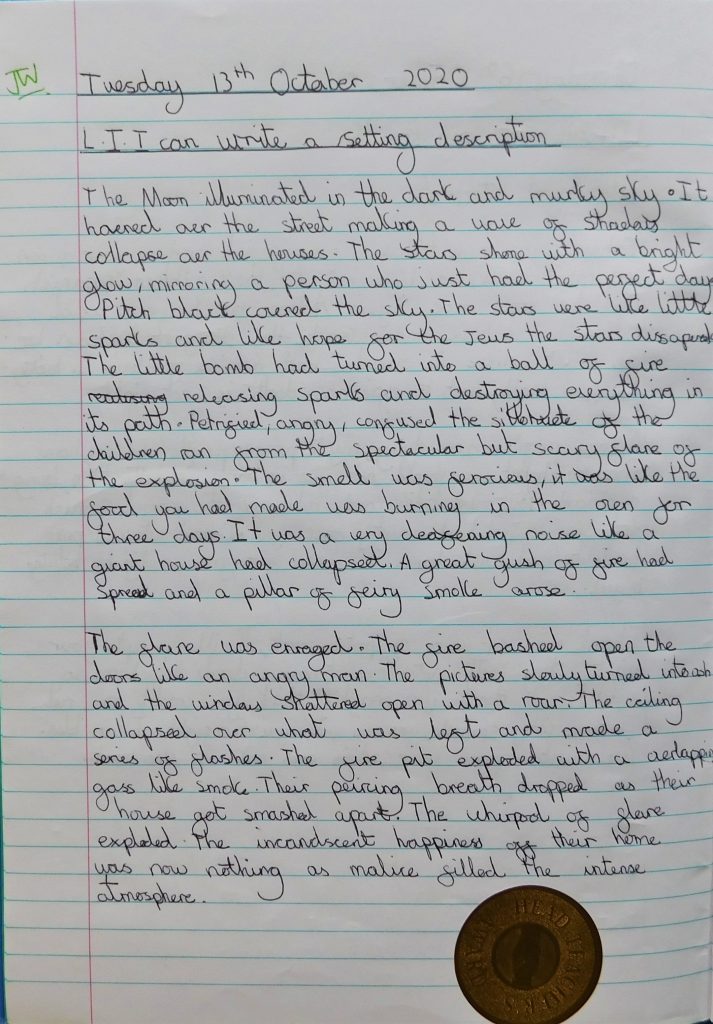 JW
Tuesday 13th October 2020
L.I. I can write a setting description
The Moon illuminated in the dark and murky sky. It
hovered over the street making a wave of shadows
collapse over the houses. The stars shone with a bright
glow, mirroring a person who just had the perfect day
Pitch black covered the sky. The stars were like little
sparks and like hope for the Jews the stars
The little bomb had turned into a ball of fire
releasing sparks and destroying everything in
its path. Petrified, angry, confused the of the
children ran from the spectacular but scary flare of
the explosion. The smell was ferocious, it was like the
food you had made was burning in the oven for
three days. It was a very deafening noise like a
giant house had collapsed. A great gush of fire had
spread and a pillar of feiry smoke arose.
The flare was enraged. The fire bashed open the
doors like an angry man. The pictures slowly turned into ash
and the windows shattered open with a roar. The ceiling
collapsed over what was left and made a
series of flashes. The fire pit exploded with a
gass like smoke. Their peircing breath dropped as their
house got smashed apart. The whirpool of flare
exploded. The incandscent happiness off their home
was now nothing as malice filled the intense
atmosphere.
HEAD TEACHER'S